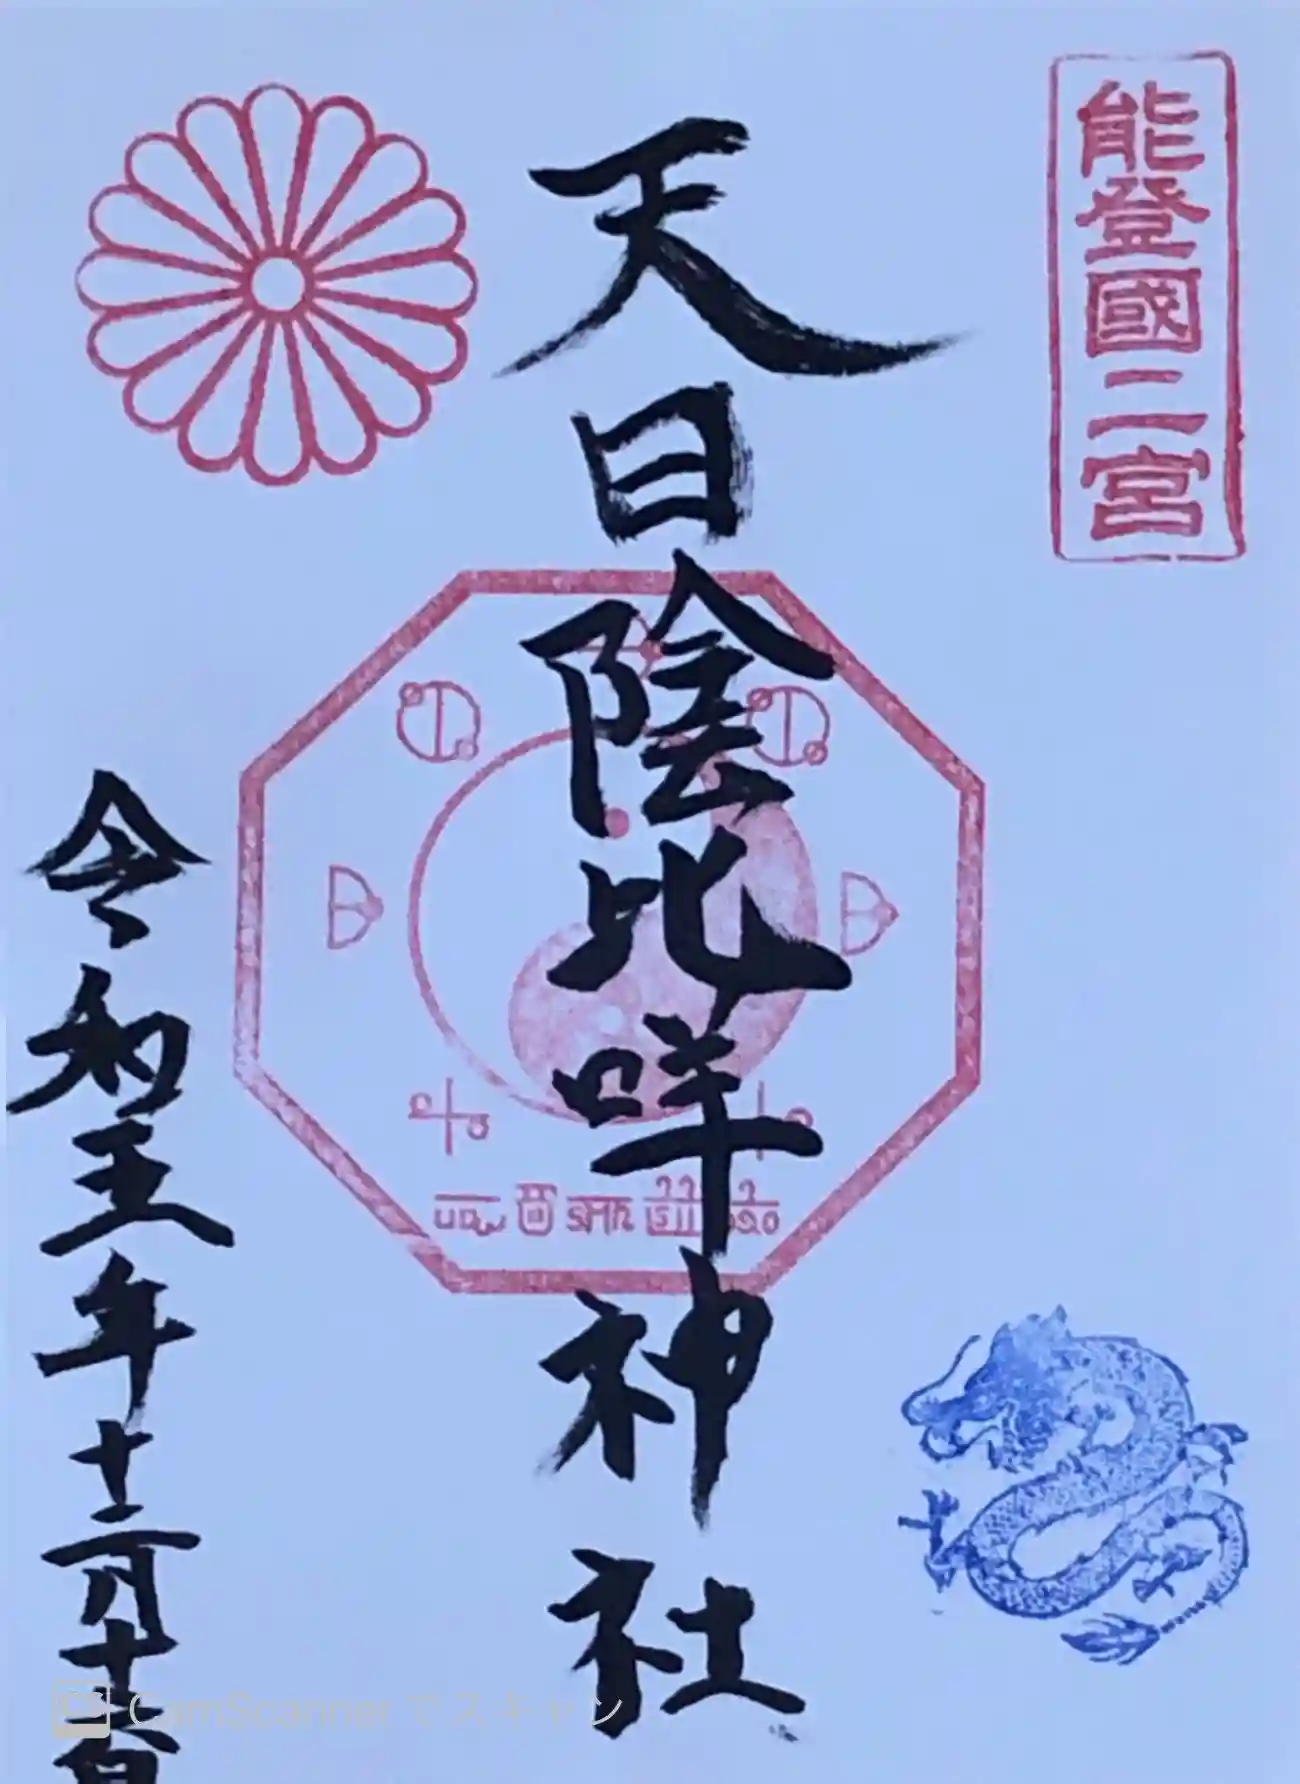 能登國二宮
天日陰比咩神社
令和五年十二月十日
CS CamScanner でスキャン